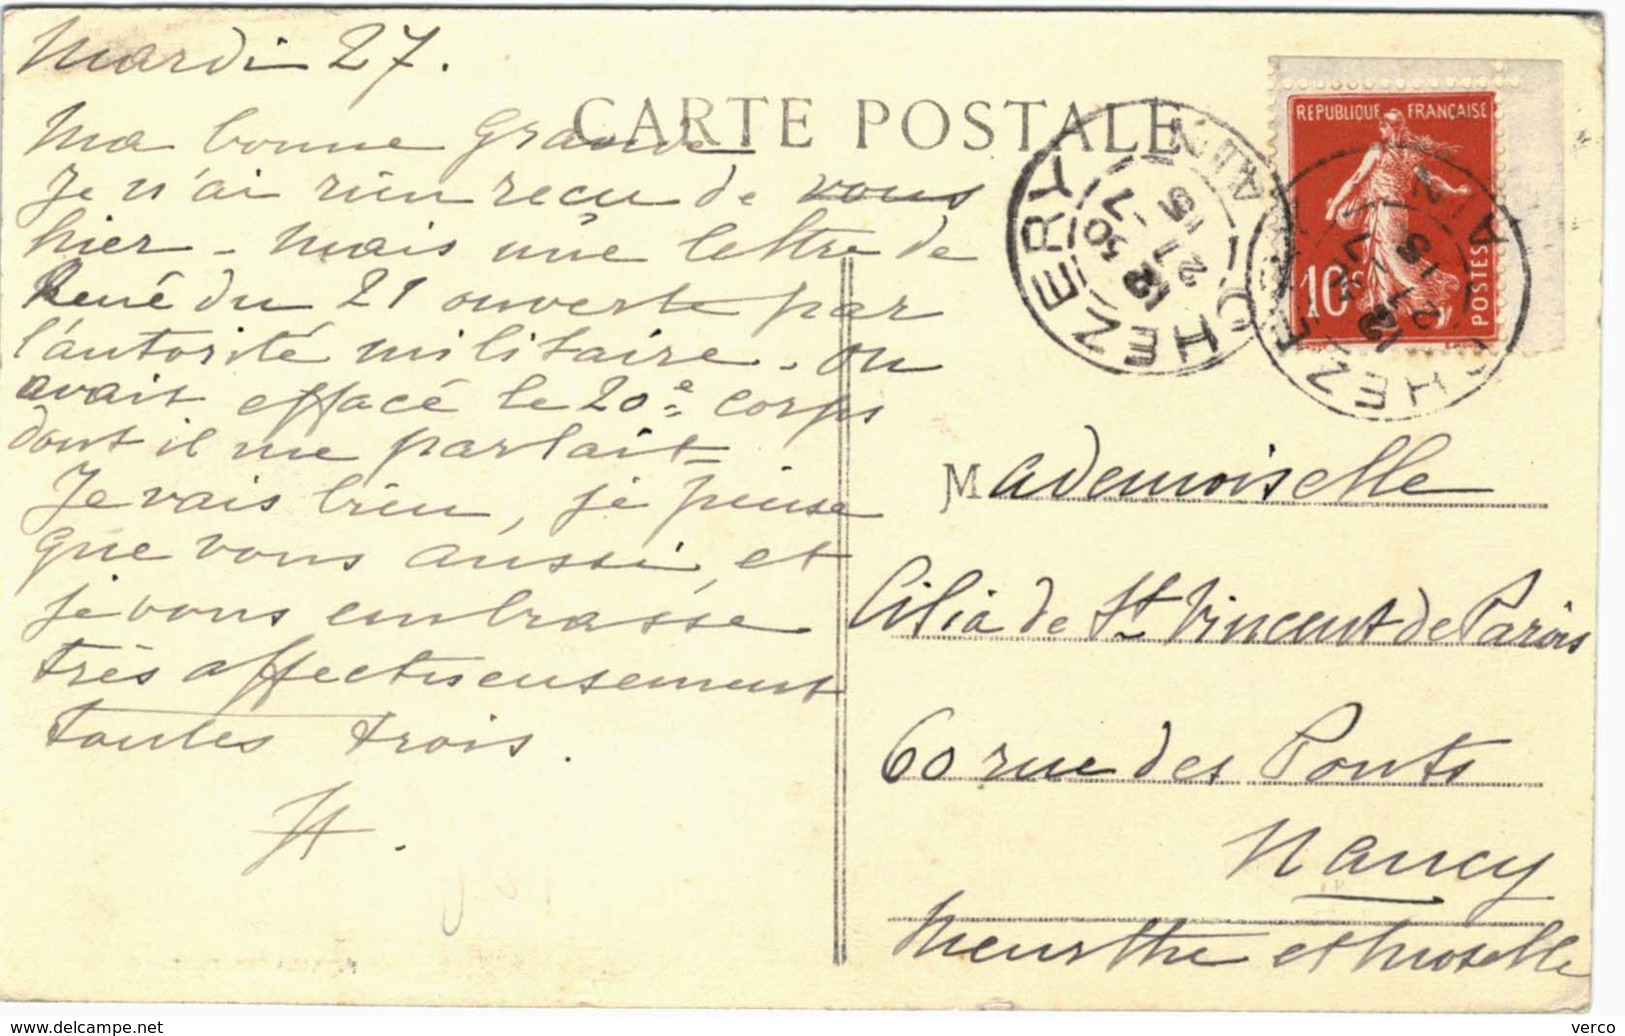 Mardi 27.
CARTE POSTALE
Ma bonne Grande
Je n'ai rien recu de vous
hier - mais une lettre de
René du 21 ouverte par
l'autorité militaire. on
avait effacé le 20e corps
dont il me parlait
Je vais bien, je pense
que vous aussi, et
je vous embrasse
très affectueusement
toutes trois.
H.
REPUBLIQUE FRANÇAISE
10c
POSTES
CHEZERY
AIN
7 30
27 12
15
CHEZERY
AIN
Mademoiselle
Cilia de St Vincent de Parois
60 rue des Ponts
Nancy
Meurthe et Moselle
www.delcampe.net
verco